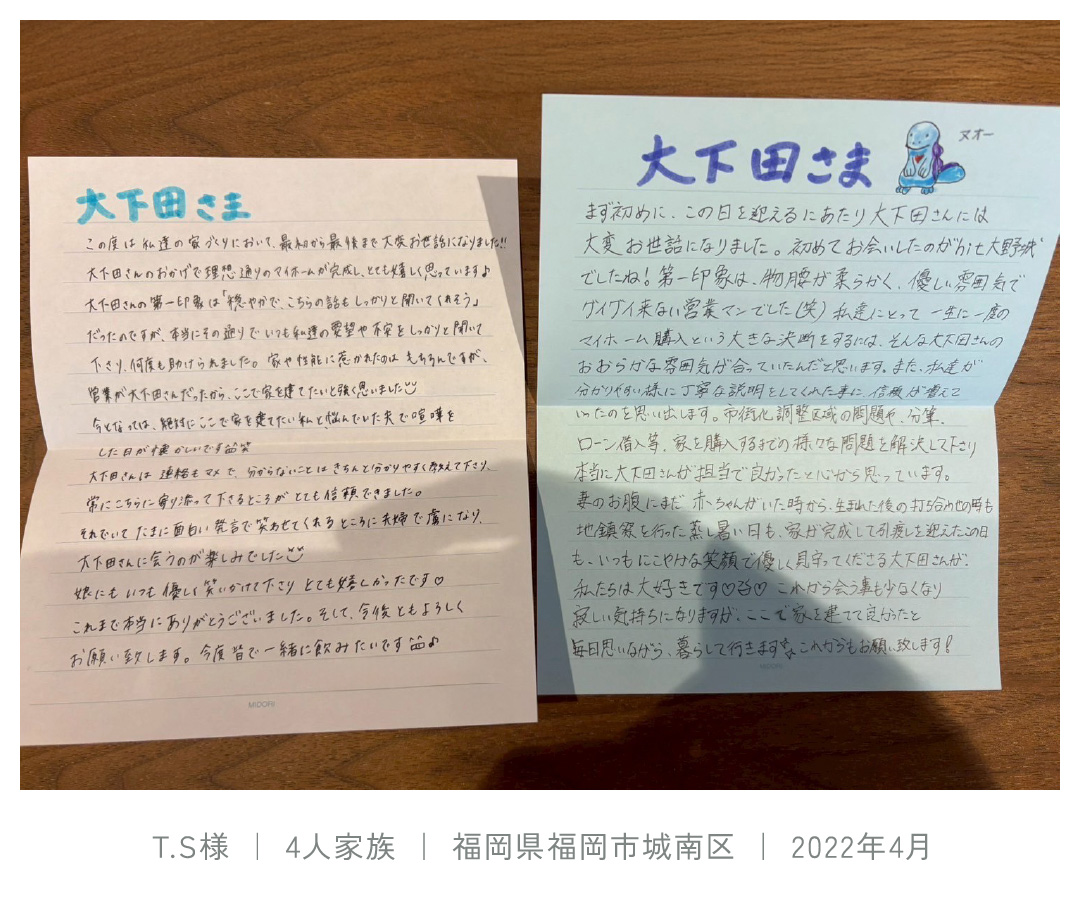 大下田さま
この度は私達の家づくりにおいて、最初から最後まで大変お世話になりました!!
大下田さんのおかげで理想通りのマイホームが完成し、とても嬉しく思っています♪
大下田さんの第一印象は「穏やかで、こちらの話もしっかりと聞いてくれそう」
だったのですが、本当にその通りでいつも私達の要望や不安をしっかりと聞いて
下さり、何度も助けられました。家や性能に惹かれたのはもちろんですが、
営業が大下田さんだったから、ここで家を建てたいと強く思いました
今となっては、絶対にここで家を建てたい私と、悩んでいた夫で喧嘩を
した日が懐かしいです笑
大下田さんは連絡もマメで、分からないことはきちんと分かりやすく教えて下さり、
常にこちらに寄り添って下さるところがとても信頼できました。
それでいてたまに面白い発言で笑わせてくれるところに夫婦で虜になり、
大下田さんに会うのが楽しみでした
娘にもいつも優しく笑いかけて下さりとても嬉しかったです♡
これまで本当にありがとうございました。そして、今後ともよろしく
お願い致します。今度皆で一緒に飲みたいです♪
MIDORI
大下田さま
ヌオー
まず初めに、この日を迎えるにあたり大下田さんには
大変お世話になりました。初めてお会いしたのがhit大野城
でしたね!第一印象は、物腰が柔らかく、優しい雰囲気で
グイグイ来ない営業マンでした(笑)私達にとって一生に一度の
マイホーム購入という大きな決断をするには、そんな大下田さんの
おおらかな雰囲気が合っていたんだと思います。また、私達が
分かりやすい様に丁寧な説明をしてくれた事に、信頼が増えて
いったのを思い出します。市街化調整区域の問題や、分筆、
ローン借入等、家を購入するまでの様々な問題を解決して下さり
本当に大下田さんが担当で良かったと心から思っています。
妻のお腹にまだ赤ちゃんがいた時から、生まれた後の打ち合わせの時も
地鎮祭を行った蒸し暑い日も、家が完成して引渡しを迎えたこの日
も、いつもにこやかな笑顔で優しく見守ってくださる大下田さんが、
私たちは大好きです♡♡これから会う事も少なくなり
寂しい気持ちになりますが、ここで家を建てて良かったと
毎日思いながら、暮らして行きますこれからもお願い致します!
MIDORI
T.S様 | 4人家族 | 福岡県福岡市城南区 | 2022年4月